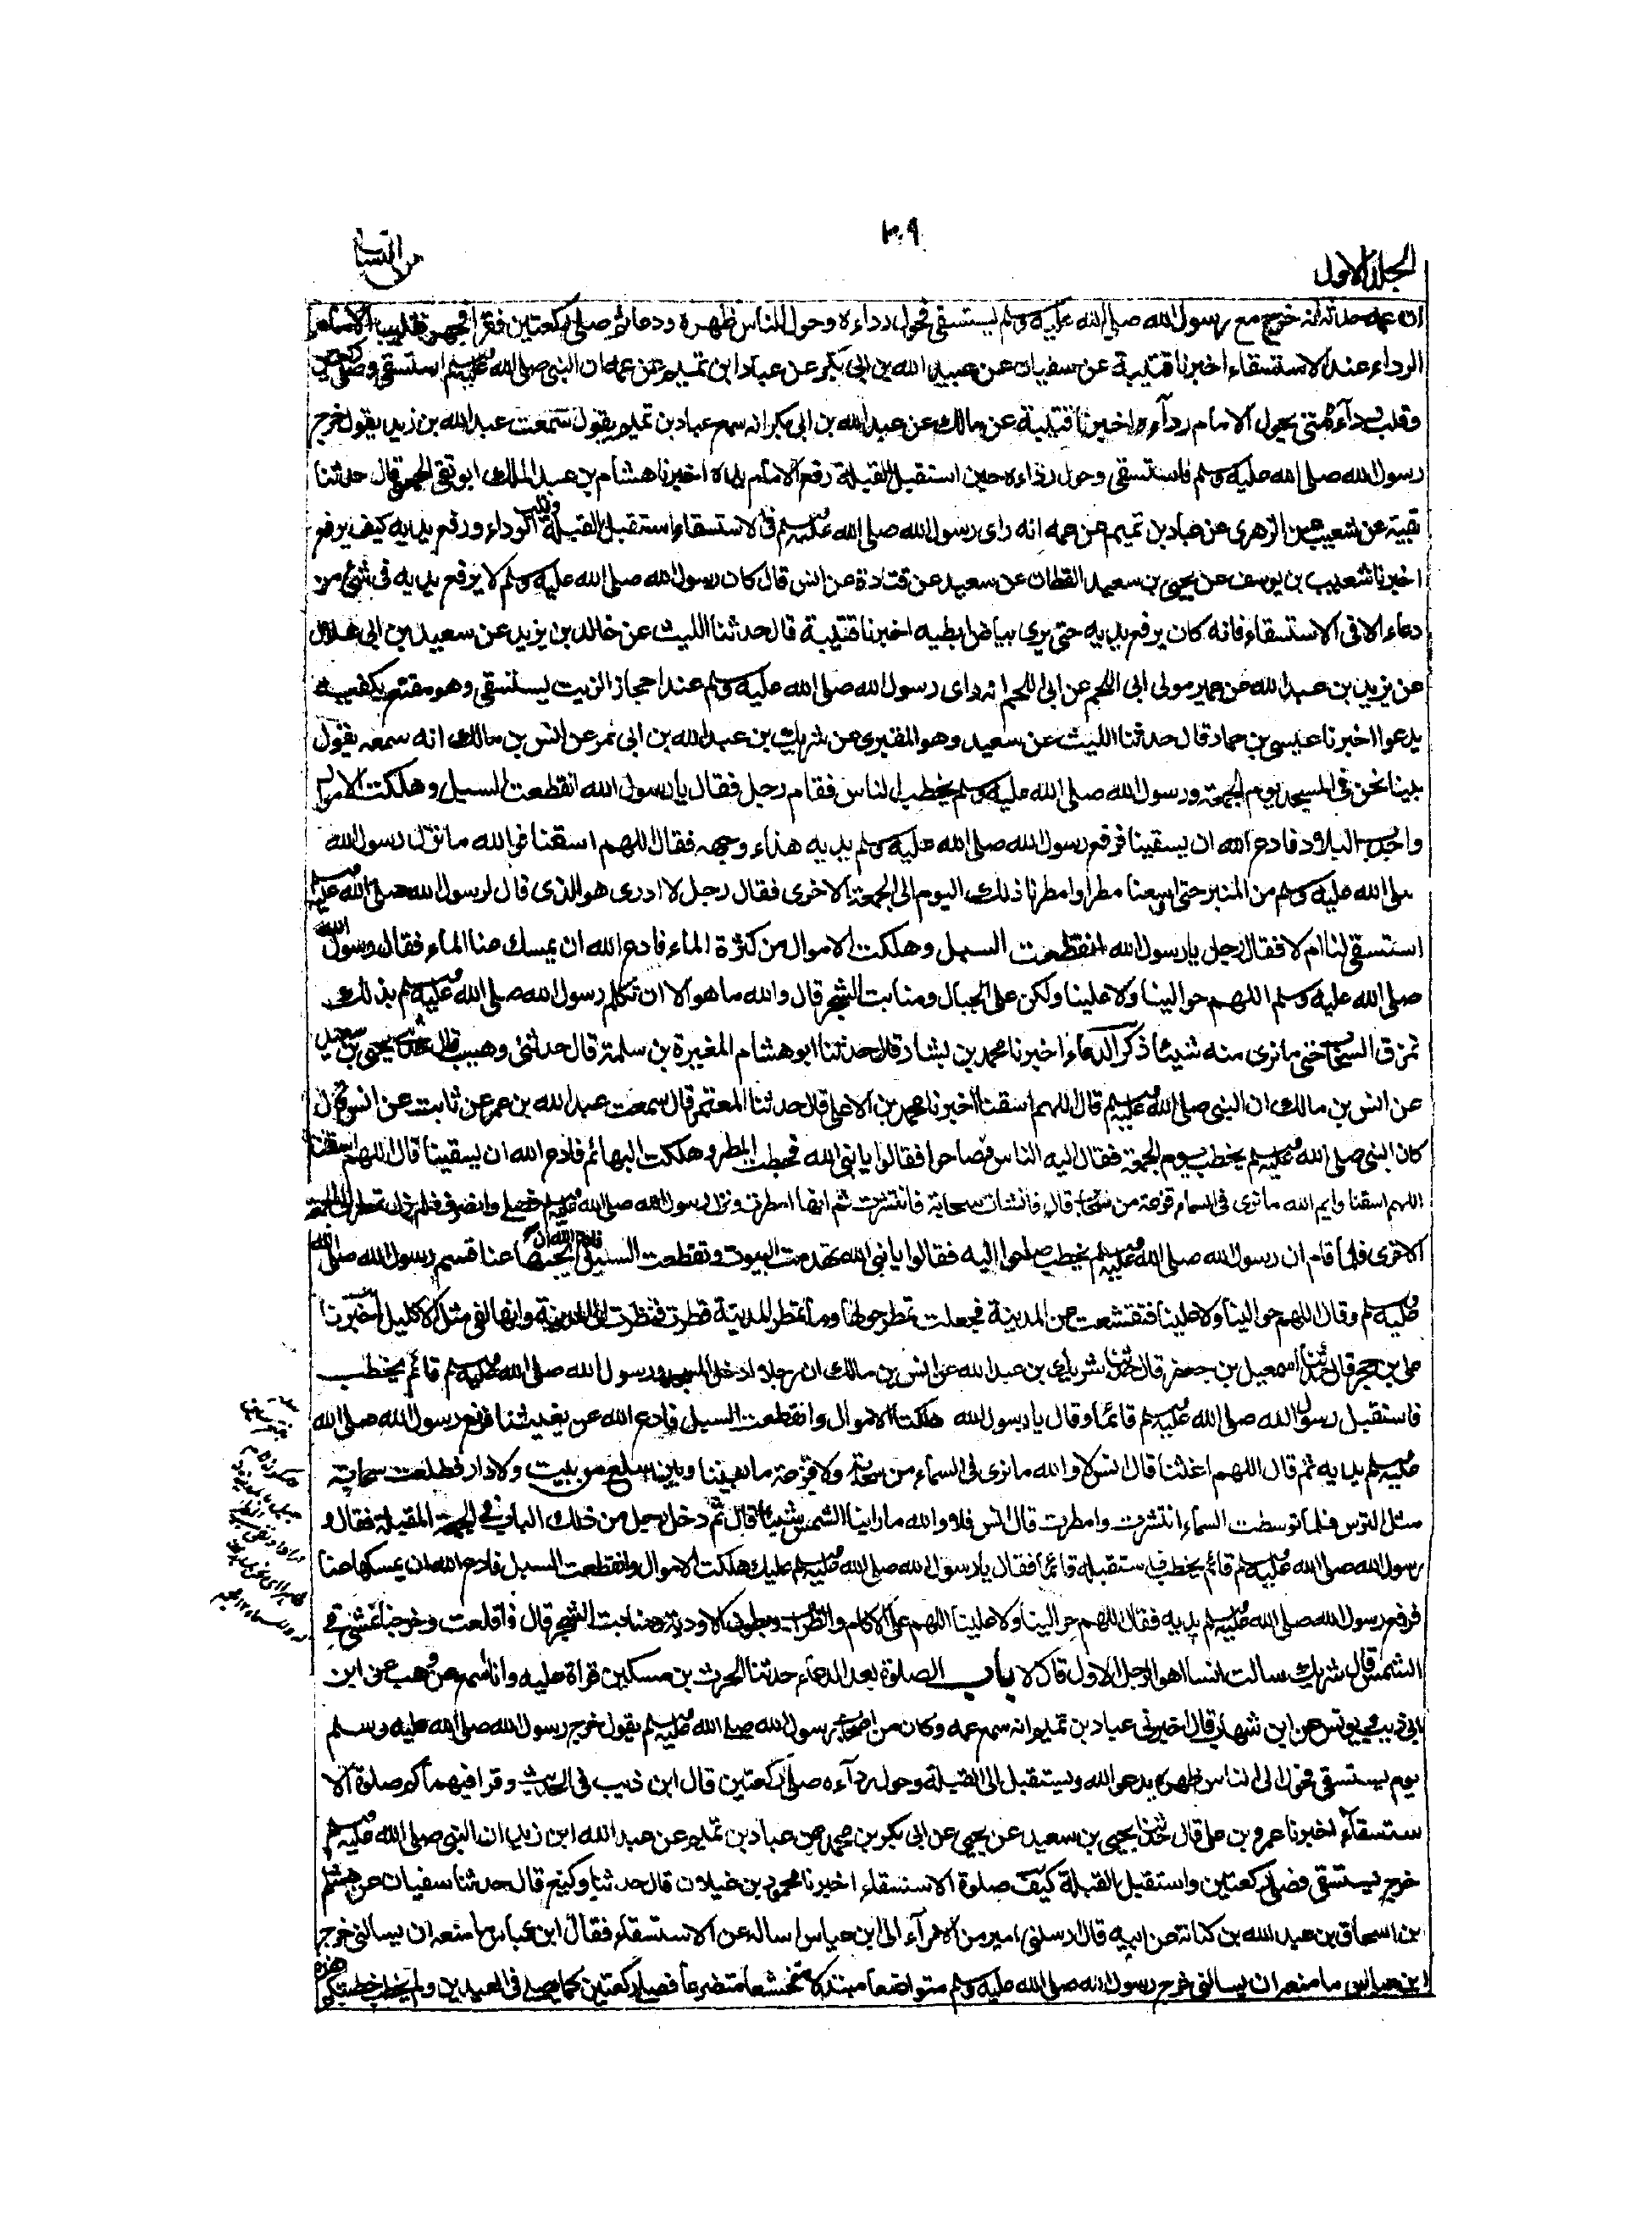 الجلد الاول
٣٠٩
من النسائي
ان عمه حدثه انه خرج مع رسول الله صلى الله عليه وسلم يستسقى فحول رداءه وحول للناس ظهره ودعا ثم صلى ركعتين فقرأ فجهر تقليب الامام
الرداء عند الاستسقاء اخبرنا قتيبة عن سفيان عن عبد الله بن ابى بكر عن عباد ابن تميم عن عمه ان النبى صلى الله عليه وسلم استسقى وصلى ركعتين
وقلب رداءه متى يحول الامام رداءه اخبرنا قتيبة عن مالك عن عبد الله بن ابى بكر انه سمع عباد بن تميم يقول سمعت عبد الله بن زيد يقول خرج
رسول الله صلى الله عليه وسلم فاستسقى وحول رداءه حين استقبل القبلة رفع الامام يداه اخبرنا هشام بن عبد الملك ابو تقى الحمصى قال حدثنا
بقية عن شعيب عن الزهرى عن عباد بن تميم عن عمه انه راى رسول الله صلى الله عليه وسلم فى الاستسقاء استقبل القبلة وقلب الرداء ورفع يديه كيف يرفع
اخبرنا شعيب بن يوسف عن يحيى بن سعيد القطان عن سعيد عن قتادة عن انس قال كان رسول الله صلى الله عليه وسلم لا يرفع يديه فى شئ من
دعاء الا فى الاستسقاء فانه كان يرفع يديه حتى يرى بياض ابطيه اخبرنا قتيبة قال حدثنا الليث عن خالد بن يزيد عن سعيد بن ابى هلال
عن يزيد بن عبد الله عن عمير مولى ابى اللحم عن ابى اللحم انه راى رسول الله صلى الله عليه وسلم عند احجاز الزيت يستسقى وهو مقنع بكفيه
يدعوا اخبرنا عيسى بن حماد قال حدثنا الليث عن سعيد وهو المقبرى عن شريك بن عبد الله بن ابى نمر عن انس بن مالك انه سمعه يقول
بينا نحن فى المسجد يوم الجمعة ورسول الله صلى الله عليه وسلم يخطب الناس فقام رجل فقال يا رسول الله انقطعت السبل وهلكت الاموال
واجدب البلاد فادع الله ان يسقينا فرفع رسول الله صلى الله عليه وسلم يديه هذاء وجهه فقال اللهم اسقنا فوالله ما نزل رسول الله
صلى الله عليه وسلم من المنبر حتى اسعنا مطرا وامطرنا ذلك اليوم الى الجمعة الاخرى فقال رجل لا ادرى هو الذى قال لرسول الله صلى الله عليه وسلم
استسقى لنا ام لا فقال رجل يا رسول الله انقطعت السبل وهلكت الاموال من كثرة الماء فادع الله ان يمسك عنا الماء فقال رسول الله
صلى الله عليه وسلم اللهم حوالينا ولا علينا ولكن على الجبال ومنابت الشجر قال والله ما هو الا ان تكلم رسول الله صلى الله عليه وسلم بذلك
تمزق السحاب حتى ما نرى منه شيئا ذكر الدعاء اخبرنا محمد بن بشار قال حدثنا ابو هشام المغيرة بن سلمة قال حدثنى وهيب قال حدثنا يحيى بن سعيد
عن انس بن مالك ان النبى صلى الله عليه وسلم قال اللهم اسقنا اخبرنا محمد بن الاعلى قال حدثنا المعتمر قال سمعت عبد الله بن عمر عن ثابت عن انس قال
كان النبى صلى الله عليه وسلم يخطب يوم الجمعة فقال اليه الناس فصاحوا فقالوا يا نبى الله قحطت المطر وهلكت البهائم فادع الله ان يسقينا قال اللهم اسقنا
اللهم اسقنا وايم الله ما نرى فى السماء قزعة من سحاب قال فانشات سحابة فانتشرت ثم انها امطرت ونزل رسول الله صلى الله عليه وسلم فصلى وانصرف فلم تزل تمطر الى الجمعة
الاخرى فلما قام ان رسول الله صلى الله عليه وسلم يخطب صاحوا اليه فقالوا يا نبى الله تهدمت البيوت وتقطعت السبيل فادع الله ان يحبسها عنا فتبسم رسول الله صلى الله
عليه وسلم وقال اللهم حوالينا ولا علينا فتقشعت عن المدينة فجعلت تمطر حولها وما تمطر المدينة قطرة فنظرت الى المدينة وانها لفى مثل الاكليل اخبرنا
على بن حجر قال حدثنا اسمعيل بن جعفر قال حدثنا شريك بن عبد الله عن انس بن مالك ان رجلا دخل المسجد ورسول الله صلى الله عليه وسلم قائم يخطب
فاستقبل رسول الله صلى الله عليه وسلم قائما وقال يا رسول الله هلكت الاموال وانقطعت السبيل فادع الله عن يغيثنا فرفع رسول الله صلى الله
عليه وسلم يديه ثم قال اللهم اغثنا قال انس لا والله ما نرى فى السماء من سحابة ولا قزعة ما بيننا وبين سلع من بيت ولا دار فطلعت سحابة
مثل الترس فلما توسطت السماء انتشرت وامطرت قال انس فلا والله ما راينا الشمس شيئا قال ثم دخل رجل من ذلك الباب فى الجمعة المقبلة فقال و
رسول الله صلى الله عليه وسلم قائم يخطب فاستقبله قائما فقال يا رسول الله صلى الله عليه وسلم عليك هلكت الاموال وانقطعت السبل فادع الله ان يمسكها عنا
فرفع رسول الله صلى الله عليه وسلم يديه فقال اللهم حوالينا ولا علينا اللهم على الاكام والظراب وبطون الاودية ومنابت الشجر قال فاقلعت وخرجنا نمشى فى
الشمس قال شريك سالت انسا اهو الرجل الاول قال لا باب الصلوة بعد الدعاء حدثنا الحرث بن مسكين قراة عليه وانا اسمع عن وهب عن ابن
ابى ذيب ويونس عن ابن شهاب قال اخبرنى عباد بن تميم انه سمع عمه وكان من اصحاب رسول الله صلى الله عليه وسلم يقول خرج رسول الله صلى الله عليه وسلم
يوم يستسقى فحول الى الناس ظهره يدعو الله ويستقبل الى القبلة وحول رداءه صلى ركعتين قال ابن ذيب فى الحديث وقرا فيهما كم صلوة الا
ستسقاء اخبرنا عمرو بن على قال حدثنا يحيى بن سعيد عن يحيى عن ابى بكر بن محمد عن عباد بن تميم عن عبد الله ابن زيد ان النبى صلى الله عليه وسلم
خرج يستسقى فصلى ركعتين واستقبل القبلة كيف صلوة الاستسقاء اخبرنا محمود بن غيلان قال حدثنا وكيع قال حدثنا سفيان عن هشام
بن اسحاق بن عبد الله بن كنانة عن ابيه قال ارسلنى امير من الامراء الى ابن عباس اساله عن الاستسقاء فقال ابن عباس ما منعه ان يسالنى خرج
ابن عباس ما منعه ان يسالنى خرج رسول الله صلى الله عليه وسلم متواضعا مبتذلا متخشعا متضرعا فصلى ركعتين كما يصلى فى العيدين ولم يخطب خطبتكم هذه